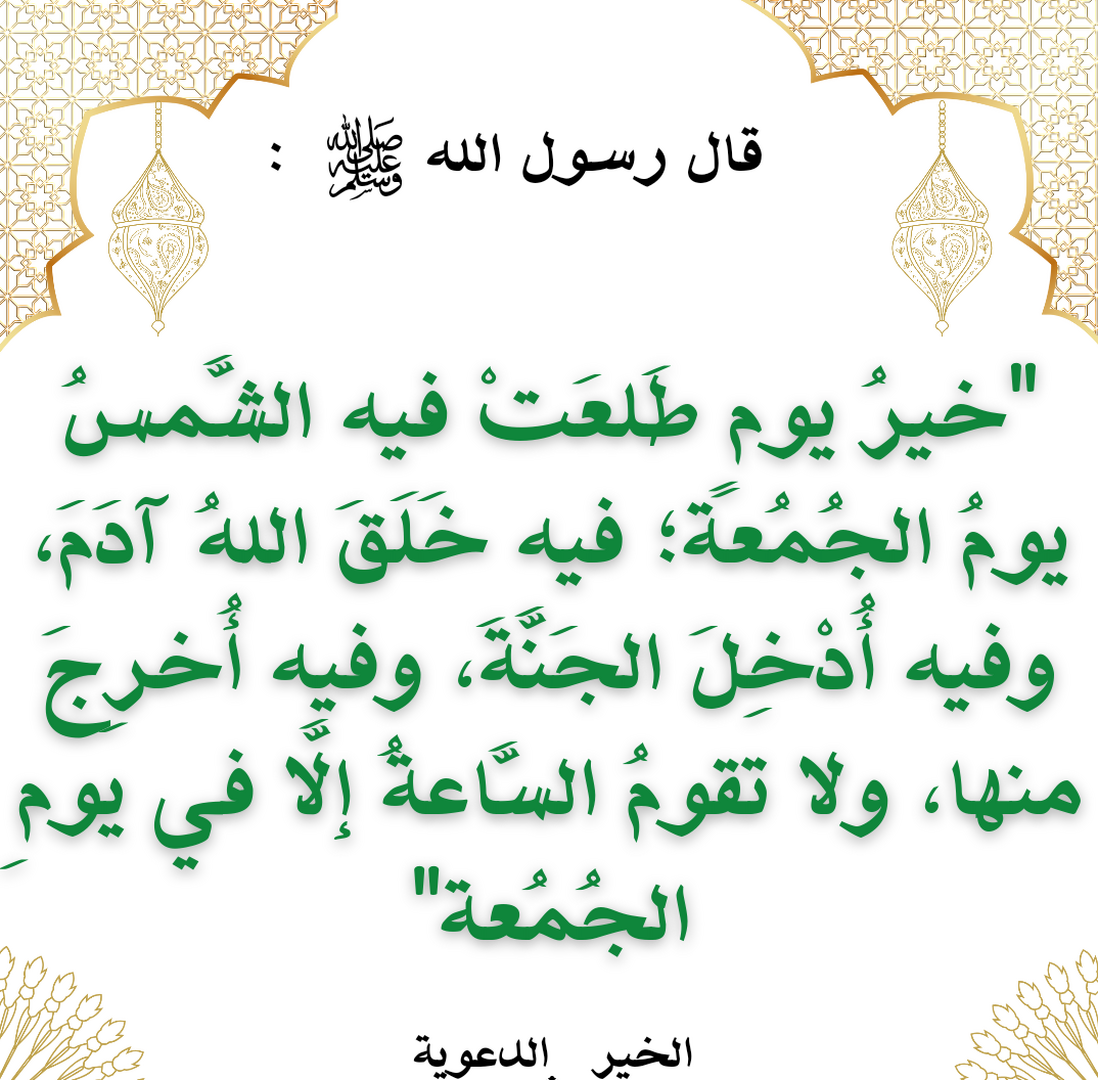 قال رسول الله ﷺ :
"خيرُ يوم طَلعَتْ فيه الشَّمسُ
يومُ الجُمُعةً؛ فيه خَلَقَ اللهُ آدَمَ،
وفيه أُدْخِلَ الجَنَّةَ، وفيه أُخرِجَ
منها، ولا تقومُ السَّاعةُ إلَّا في يومِ
الجُمُعة"
الخير الدعوية